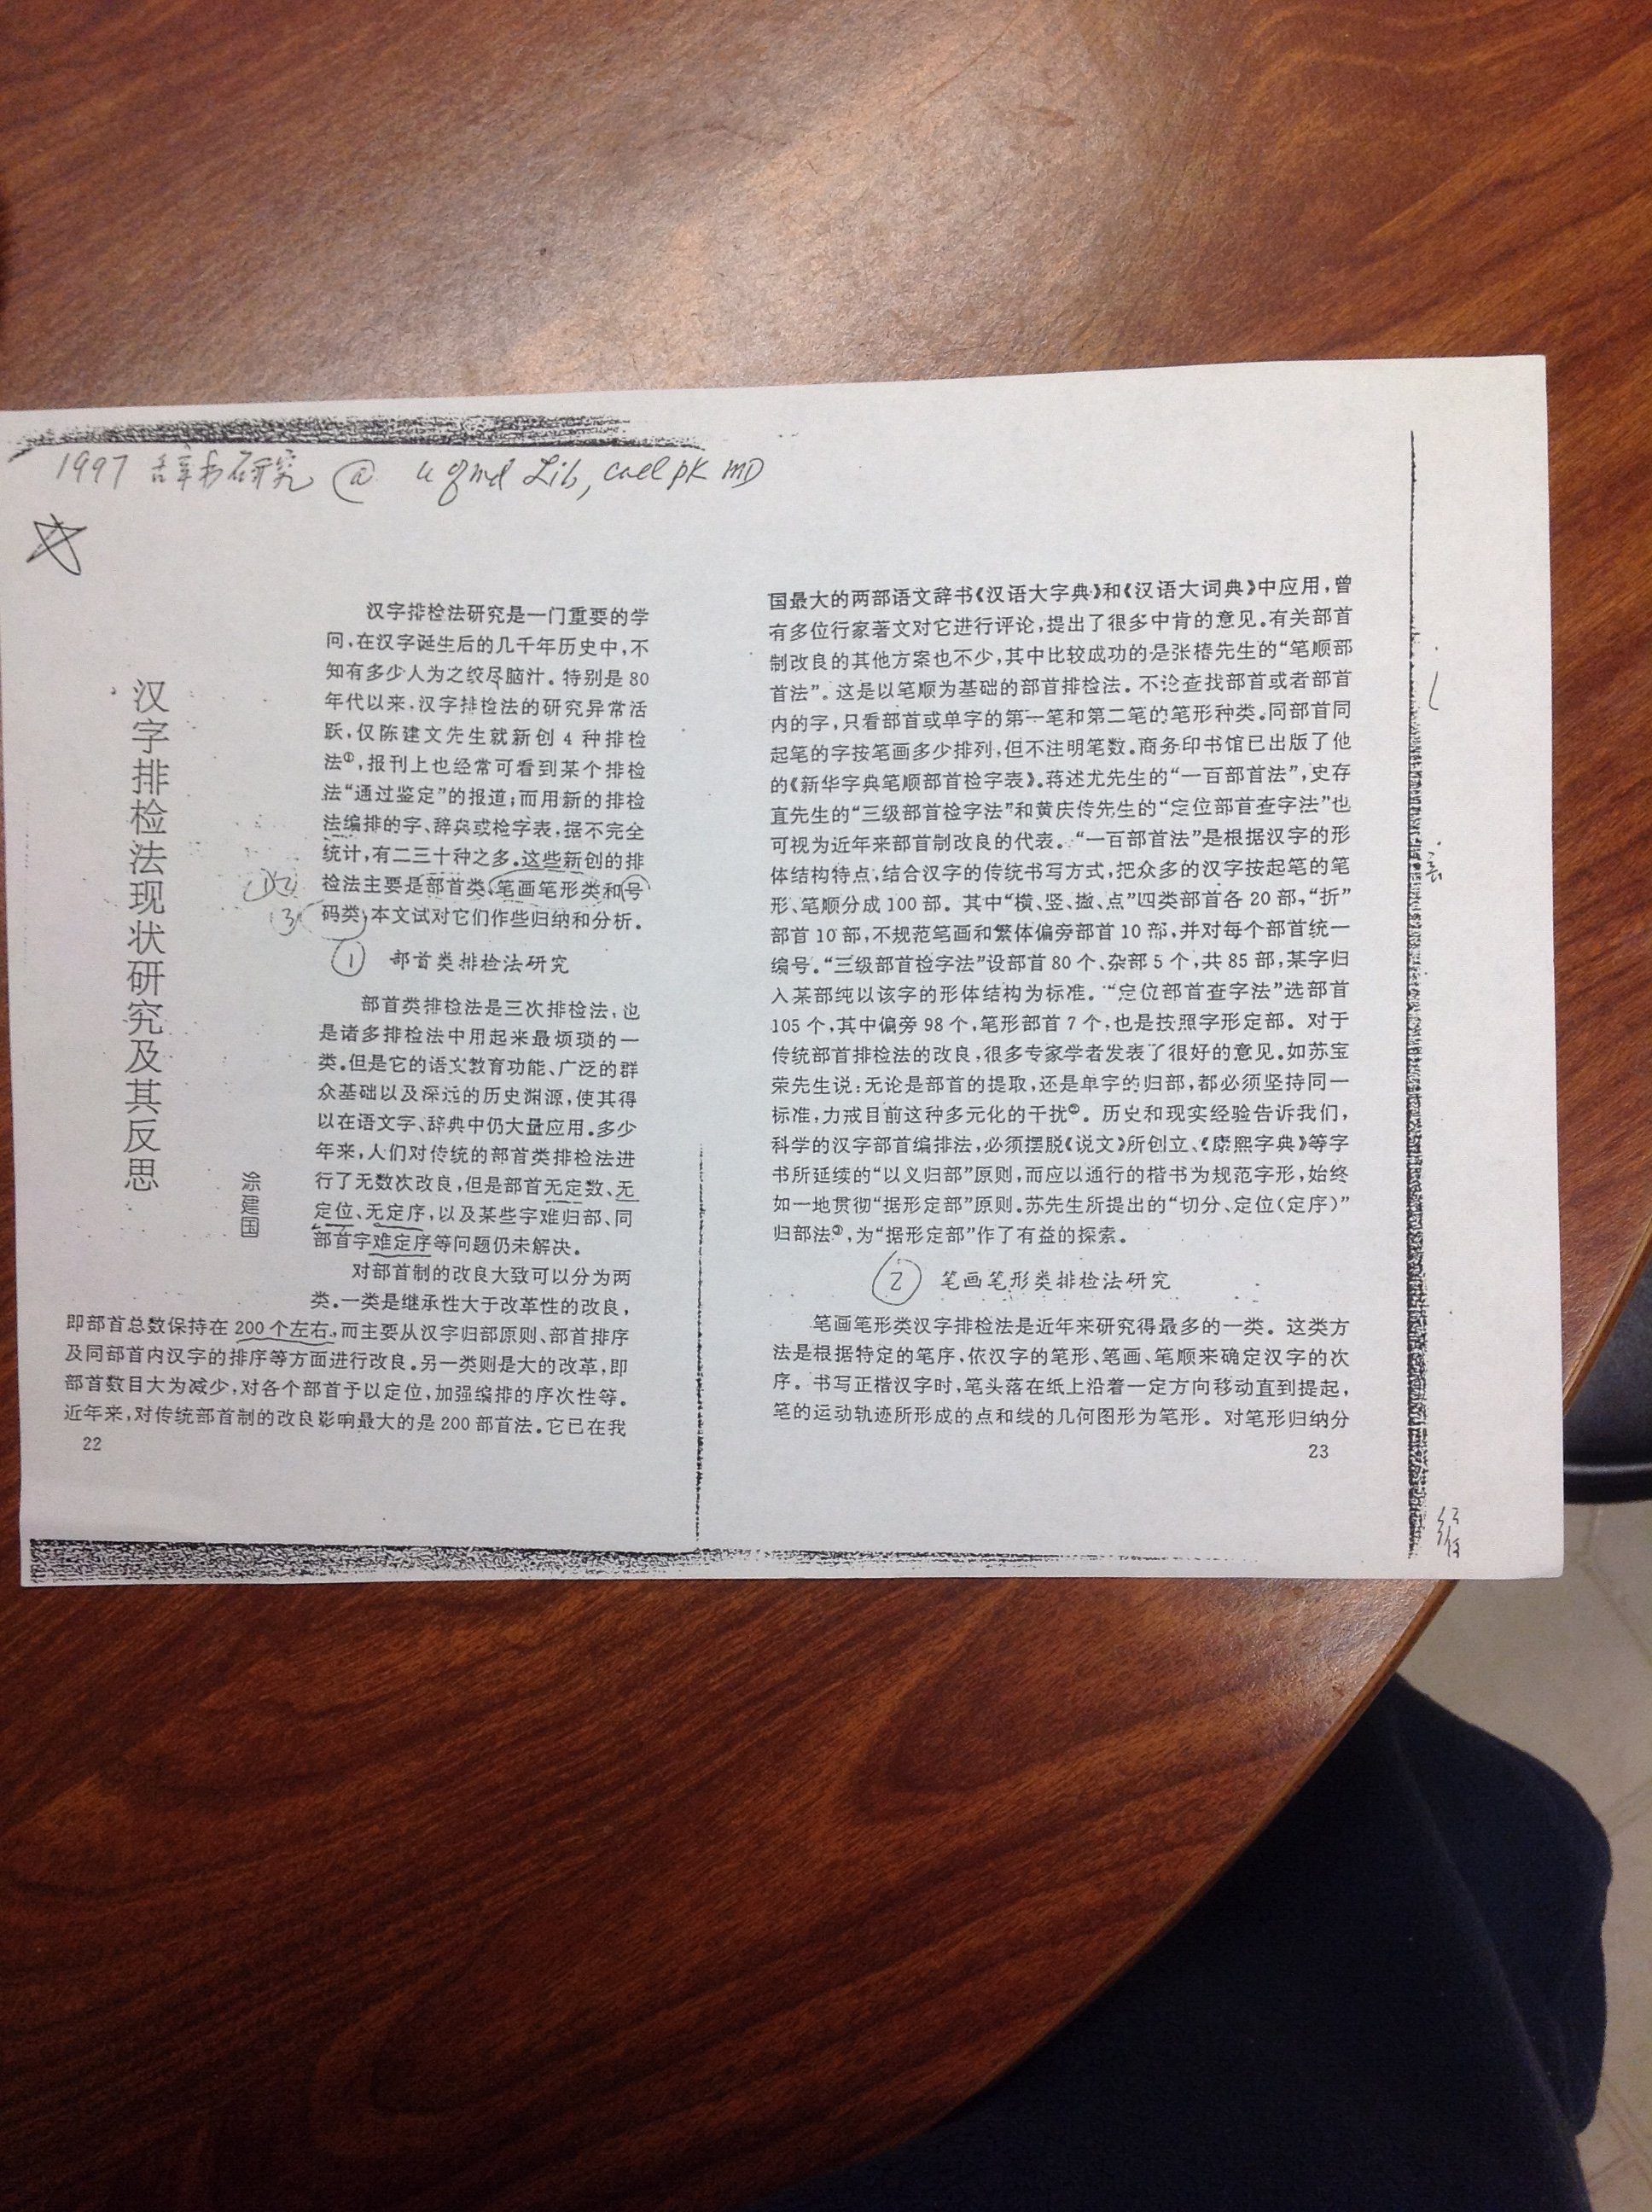 1997 辞书研究 @ u of md Lib, coll pk MD
汉字排检法现状研究及其反思
涂建国
汉字排检法研究是一门重要的学
问,在汉字诞生后的几千年历史中,不
知有多少人为之绞尽脑汁。特别是 80
年代以来,汉字排检法的研究异常活
跃,仅陈建文先生就新创 4 种排检
法①,报刊上也经常可看到某个排检
法“通过鉴定”的报道;而用新的排检
法编排的字、辞典或检字表,据不完全
统计,有二三十种之多。这些新创的排
检法主要是部首类、笔画笔形类和号
码类,本文试对它们作些归纳和分析。
① 部首类排检法研究
部首类排检法是三次排检法,也
是诸多排检法中用起来最烦琐的一
类。但是它的语文教育功能、广泛的群
众基础以及深远的历史渊源,使其得
以在语文字、辞典中仍大量应用。多少
年来,人们对传统的部首类排检法进
行了无数次改良,但是部首无定数、无
定位、无定序,以及某些字难归部、同
部首字难定序等问题仍未解决。
对部首制的改良大致可以分为两
类。一类是继承性大于改革性的改良,
即部首总数保持在 200 个左右,而主要从汉字归部原则、部首排序
及同部首内汉字的排序等方面进行改良。另一类则是大的改革,即
部首数目大为减少,对各个部首予以定位,加强编排的序次性等。
近年来,对传统部首制的改良影响最大的是 200 部首法。它已在我
22
国最大的两部语文辞书《汉语大字典》和《汉语大词典》中应用,曾
有多位行家著文对它进行评论,提出了很多中肯的意见。有关部首
制改良的其他方案也不少,其中比较成功的是张椿先生的“笔顺部
首法”。这是以笔顺为基础的部首排检法。不论查找部首或者部首
内的字,只看部首或单字的第一笔和第二笔的笔形种类。同部首同
起笔的字按笔画多少排列,但不注明笔数。商务印书馆已出版了他
的《新华字典笔顺部首检字表》。蒋述尤先生的“一百部首法”,史存
直先生的“三级部首检字法”和黄庆传先生的“定位部首查字法”也
可视为近年来部首制改良的代表。“一百部首法”是根据汉字的形
体结构特点,结合汉字的传统书写方式,把众多的汉字按起笔的笔
形、笔顺分成 100 部。其中“横、竖、撇、点”四类部首各 20 部,“折”
部首 10 部,不规范笔画和繁体偏旁部首 10 部,并对每个部首统一
编号。“三级部首检字法”设部首 80 个、杂部 5 个,共 85 部,某字归
入某部纯以该字的形体结构为标准。“定位部首查字法”选部首
105 个,其中偏旁 98 个,笔形部首 7 个,也是按照字形定部。对于
传统部首排检法的改良,很多专家学者发表了很好的意见。如苏宝
荣先生说:无论是部首的提取,还是单字的归部,都必须坚持同一
标准,力戒目前这种多元化的干扰②。历史和现实经验告诉我们,
科学的汉字部首编排法,必须摆脱《说文》所创立、《康熙字典》等字
书所延续的“以义归部”原则,而应以通行的楷书为规范字形,始终
如一地贯彻“据形定部”原则。苏先生所提出的“切分、定位(定序)”
归部法③,为“据形定部”作了有益的探索。
② 笔画笔形类排检法研究
笔画笔形类汉字排检法是近年来研究得最多的一类。这类方
法是根据特定的笔序,依汉字的笔形、笔画、笔顺来确定汉字的次
序。书写正楷汉字时,笔头落在纸上沿着一定方向移动直到提起,
笔的运动轨迹所形成的点和线的几何图形为笔形。对笔形归纳分
23